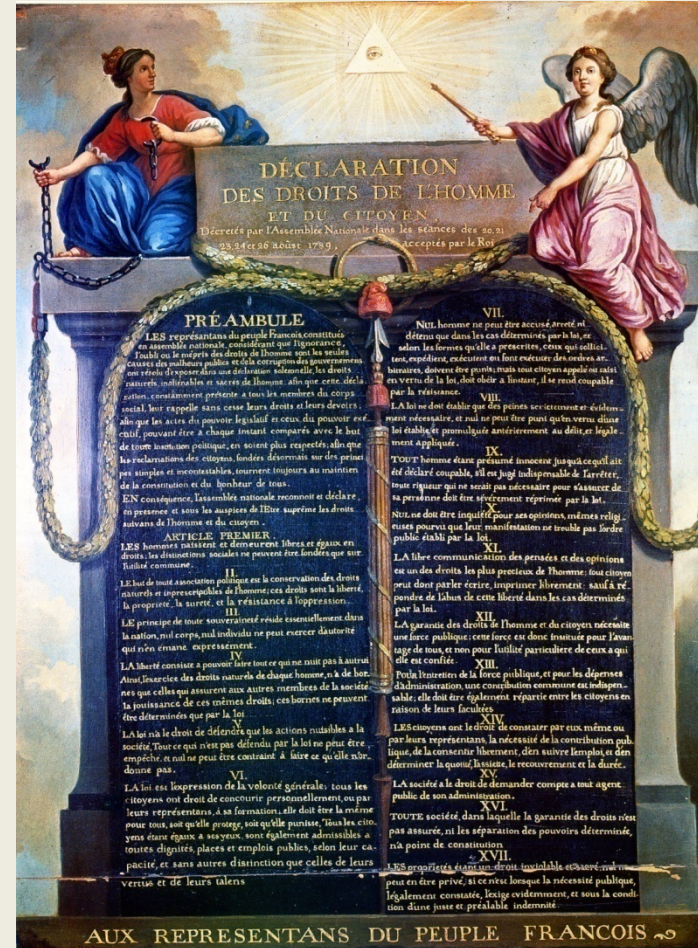 DÉCLARATION
DES DROITS DE L'HOMME
ET DU CITOYEN,
Décretés par l'Assemblée Nationale dans les séances des 20, 21
23, 24 et 26 août 1789, acceptés par le Roi
PRÉAMBULE
LES représentans du peuple François, constitués
en assemblée nationale, considérant que l'ignorance,
l'oubli ou le mépris des droits de l'homme sont les seules
causes des malheurs publics et de la corruption des gouvernemens
ont résolu d'exposer, dans une déclaration solemnelle, les droits
naturels, inaliénables et sacrés de l'homme: afin que cette décla
ration, constamment présente a tous les membres du corps
social, leur rappelle sans cesse leurs droits et leurs devoirs;
afin que les actes du pouvoir législatif et ceux du pouvoir exé
cutif, pouvant être a chaque instant comparés avec le but
de toute institution politique, en soient plus respectés; afin que
les reclamations des citoyens, fondées désormais sur des princi
pes simples et incontestables, tournent toujours au maintien
de la constitution et du bonheur de tous.
EN conséquence, l'assemblée nationale reconnoit et déclare,
en presence et sous les auspices de l'Etre suprême les droits
suivans de l'homme et du citoyen.
ARTICLE PREMIER.
LES hommes naissent et demeurent libres et égaux en
droits. les distinctions sociales ne peuvent être fondées que sur
l'utilité commune.
II.
LE but de toute association politique est la conservation des droits
naturels et inprescriptibles de l'homme; ces droits sont la liberté,
la proprieté, la sureté, et la résistance à l'oppression.
III.
LE principe de toute souveraineté réside essentiellement dans
la nation, nul corps, nul individu ne peut exercer d'autorité
qui n'en émane expressément.
IV.
LA liberté consiste a pouvoir faire tout ce qui ne nuit pas à autrui
Ainsi, l'exercice des droits naturels de chaque homme, n'a de bor-
nes que celles qui assurent aux autres membres de la société
la jouissance de ces mêmes droits; ces bornes ne peuvent
être déterminées que par la loi.
V.
LA loi n'a le droit de défendre que les actions nuisibles a la
société. Tout ce qui n'est pas défendu par la loi ne peut être
empêché, et nul ne peut être contraint à faire ce qu'elle n'or-
donne pas.
VI.
LA loi est l'expression de la volonté générale; tous les
citoyens ont droit de concourir personnellement, ou par
leurs représentans, à sa formation; elle doit être la même
pour tous, soit qu'elle protege, soit qu'elle punisse. Tous les cito
yens étant égaux a ses yeux, sont également admissibles a
toutes dignités, places et emplois publics, selon leur ca-
pacité, et sans autres distinction que celles de leurs
vertus et de leurs talens
VII.
NUL homme ne peut être accusé, arreté ni
détenu que dans les cas déterminés par la loi, et
selon les formes qu'elle a prescrites, ceux qui sollici-
tent, expédient, exécutent ou font exécuter des ordres ar-
bitraires, doivent être punis; mais tout citoyen appelé ou saisi
en vertu de la loi, doit obéir a l'instant, il se rend coupable
par la résistance.
VIII.
LA loi ne doit établir que des peines strictement et évidem-
ment nécessaire, et nul ne peut être puni qu'en vertu d'une
loi établie et promulguée antérierement au délit, et légale
ment appliquée.
IX.
TOUT homme étant présumé innocent jusqu'a ce qu'il ait
été déclaré coupable, s'il est jugé indispensable de l'arrêter,
toute rigueur qui ne serait pas nécessaire pour s'assurer de
sa personne doit être sévérement réprimée par la loi.
X.
NUL ne doit être inquiété pour ses opinions, mêmes religi-
euses pourvu que leur manifestation ne trouble pas l'ordre
public établi par la loi.
XI.
LA libre communication des pensées et des opinions
est un des droits les plus precieux de l'homme; tout citoyen
peut dont parler écrire, imprimer librement: sauf à ré-
pondre de l'abus de cette liberté dans les cas déterminés
par la loi.
XII.
LA garantie des droits de l'homme et du citoyen nécessite
une force publique; cette force est donc instituée pour l'avan-
tage de tous, et non pour l'utilité particuliere de ceux a qui
elle est confiée.
XIII.
POUR l'entretien de la force publique, et pour les dépenses
d'administration, une contribution commune est indispen-
sable; elle doit être également répartie entre les citoyens en
raison de leurs facultées
XIV.
LES citoyens ont le droit de constater par eux même ou
par leurs représentans, la nécessité de la contribution pub
lique, de la consentir librement, d'en suivre l'emploi, et d'en
déterminer la quotité, l'assiette, le recouvrement et la durée.
XV.
LA société a le droit de demander compte a tout agent
public de son administration.
XVI.
TOUTE société, dans laquelle la garantie des droits n'est
pas assurée, ni les séparation des pouvoirs déterminée,
n'a point de constitution
XVII.
LES propriétés étant un droit inviolable et sacré, nul ne
peut en être privé, si ce n'est lorsque la nécessité publique,
légalement constatée, l'exige evidemment, et sous la condi-
tion d'une juste et préalable indemnité.
AUX REPRESENTANS DU PEUPLE FRANCOIS